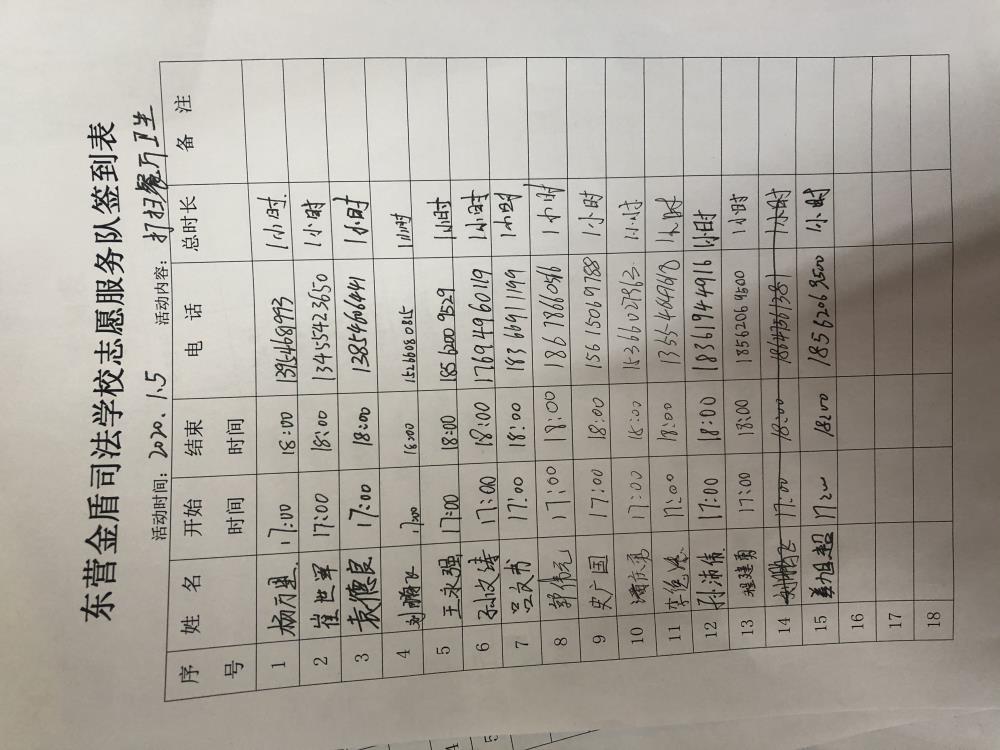 东营金盾司法学校志愿服务队签到表
活动时间: 2020.1.5 活动内容: 打扫餐厅卫生
序号 姓名 开始时间 结束时间 电话 总时长 备注
1 杨万里 17:00 18:00 1小时
2 崔世军 17:00 18:00 13455423650 1小时
3 袁德良 17:00 18:00 13854606441 1小时
4 刘鹏飞 17:00 18:00 15266080815 1小时
5 王永强 17:00 18:00 18562009529 1小时
6 孙文涛 17:00 18:00 17694960119 1小时
7 吕文书 17:00 18:00 18366911199 1小时
8 郭伟元 17:00 18:00 18678660516 1小时
9 史广国 17:00 18:00 15615069788 1小时
10 潘庆勇 17:00 18:00 15366007963 1小时
11 17:00 18:00 1小时
12 孙沛伟 17:00 18:00 18361944916 1小时
13 程建勇 17:00 18:00 18562069500 1小时
14 刘鹏飞 17:00 18:00 1小时
15 姜旭超 17:00 18:00 18562069500 1小时
16
17
18